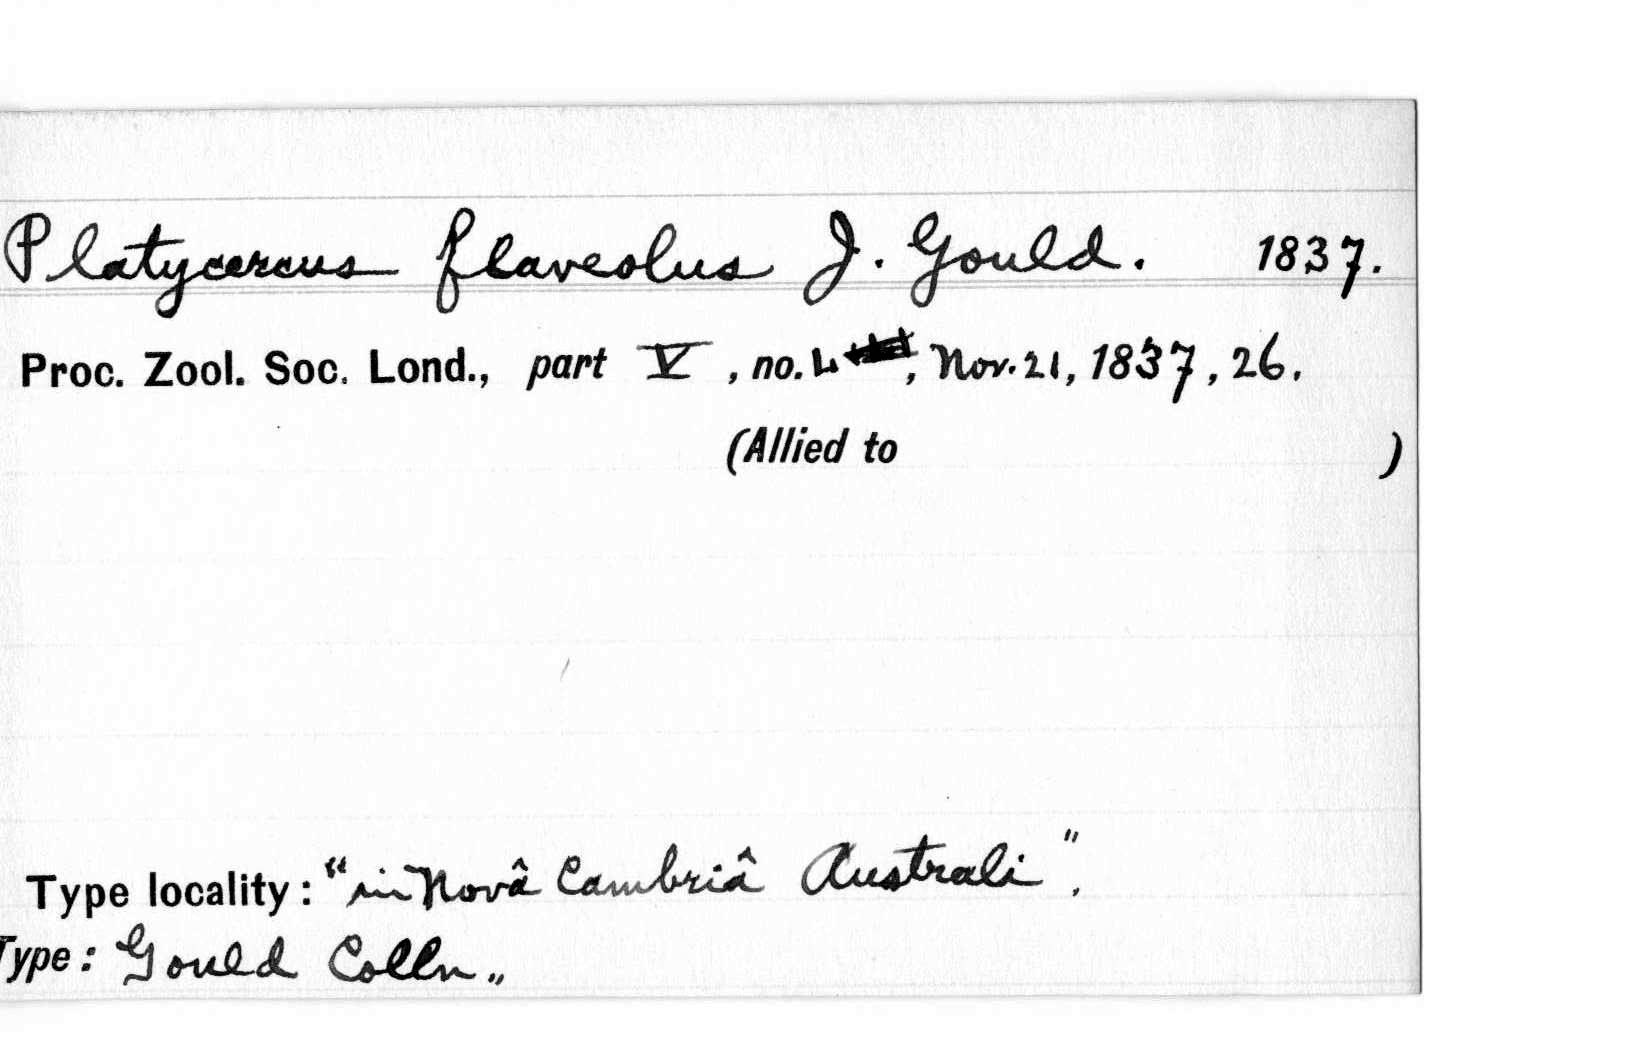 Platycercus flaveolus J. Gould. 1837.
Proc. Zool. Soc. Lond., part V, no. 4, Nov. 21, 1837, 26.
(Allied to )
Type locality: "in Novâ Cambriâ Australi".
Type: Gould Colln.